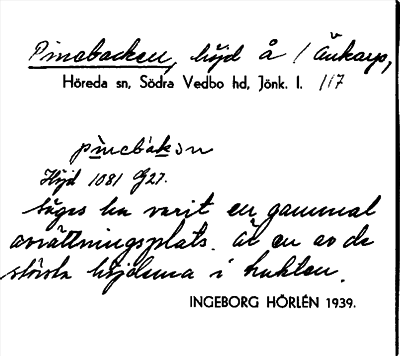 Pinabacken, höjd å /Änkarp,
Höreda sn, Södra Vedbo hd, Jönk. l. 117
pìnebàkən
Höjd 1081 G27.
Säges ha varit en gammal
avrättningsplats. är en av de
största höjderna i trakten.
INGEBORG HÖRLÉN 1939.